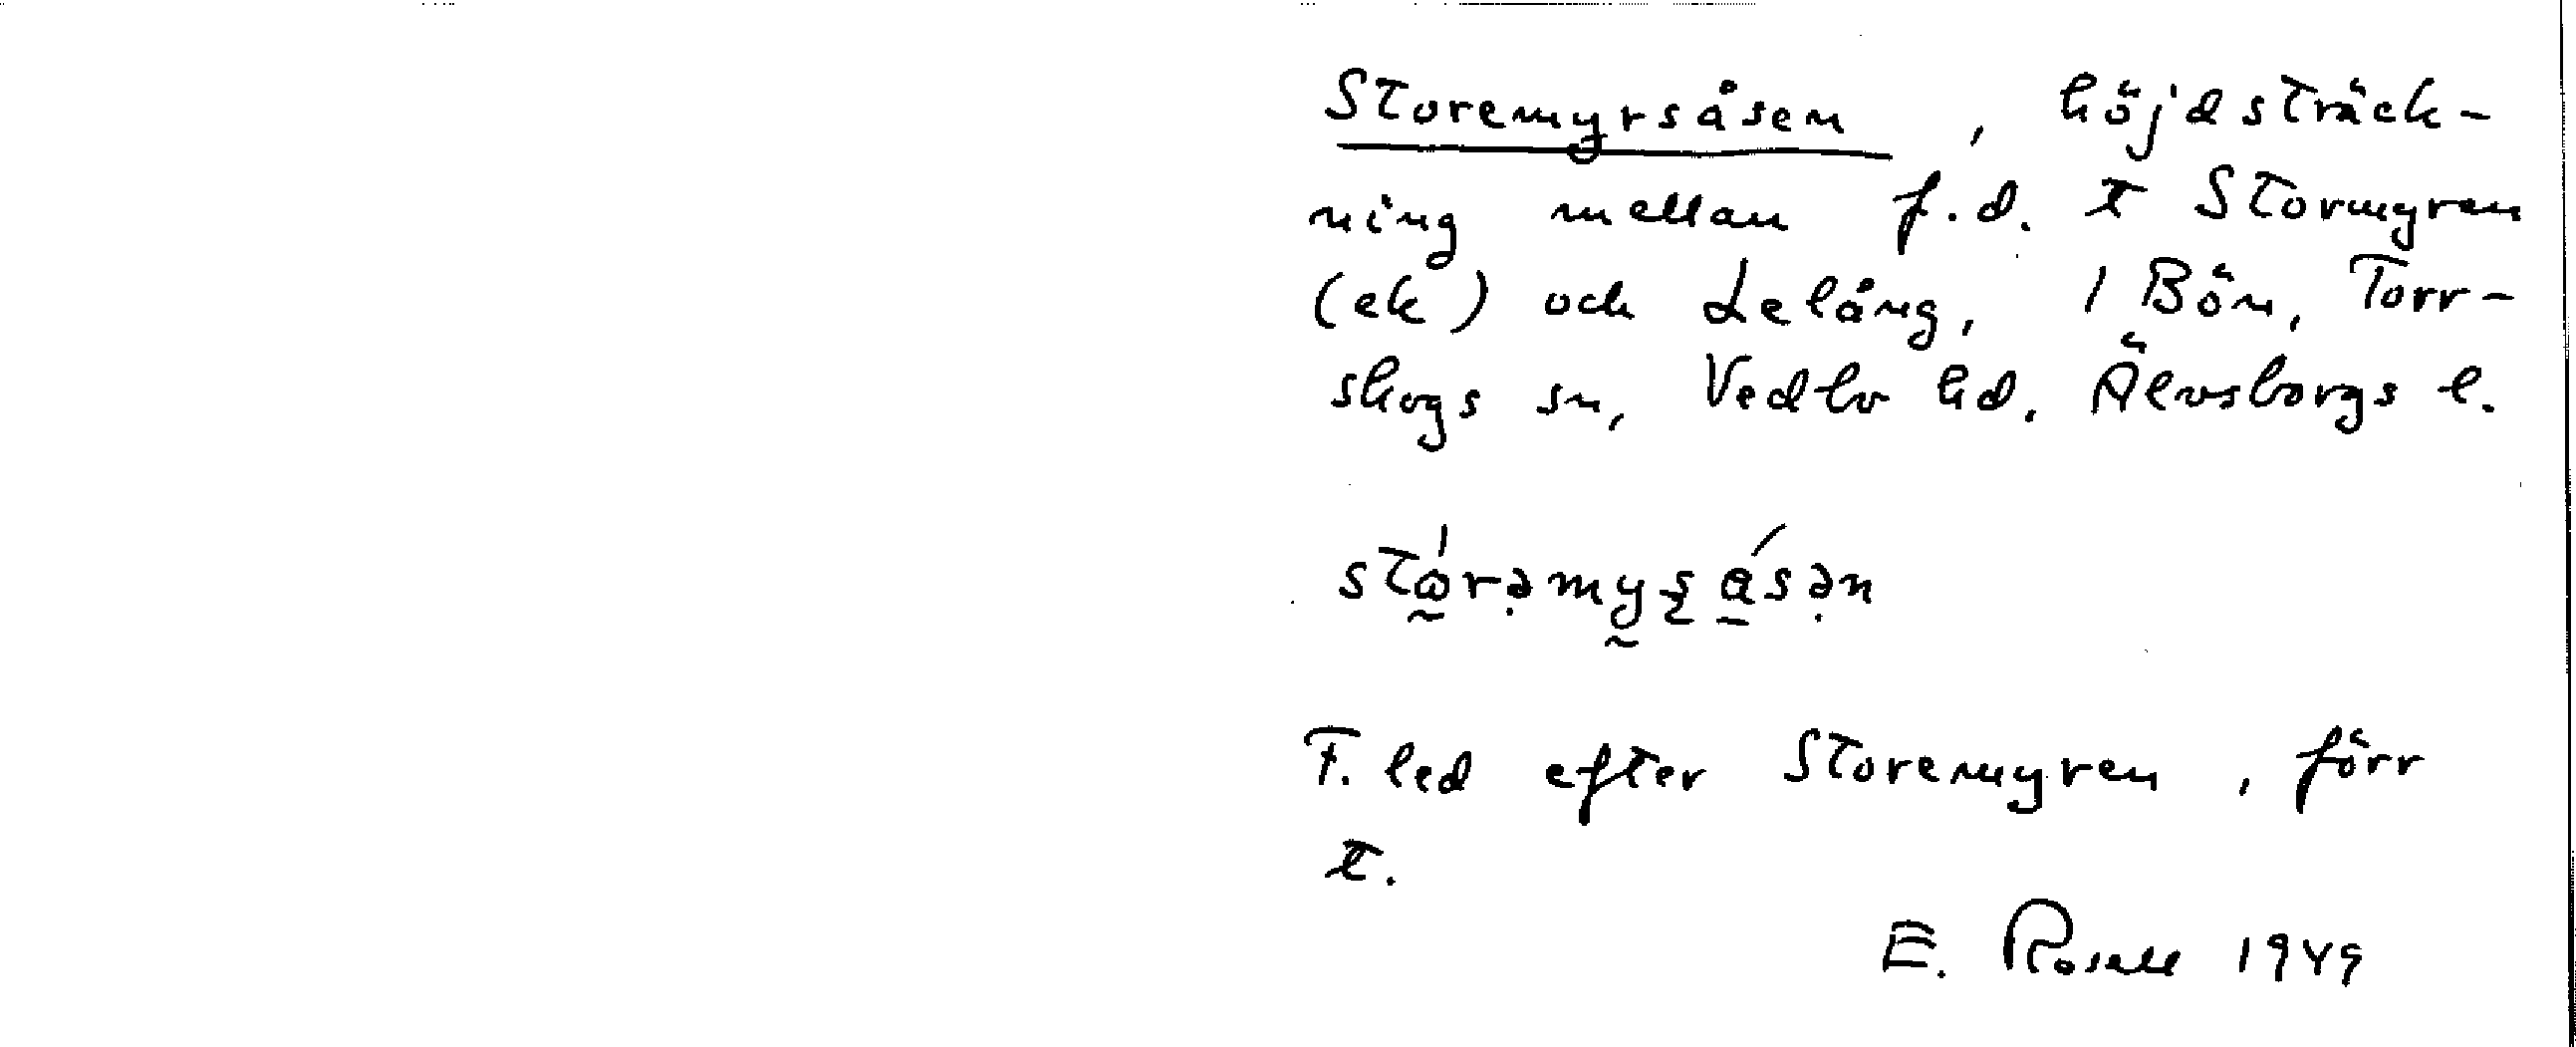 Storemyrsåsen, höjdsträck-
ning mellan f.d. t Stormyren
(ek) och Lelång, 1 Bön, Torr-
skogs sn, Vedbo hd. Älvsborgs l.
F. led efter Storemyren, förr
t.
E. Rosell 1949